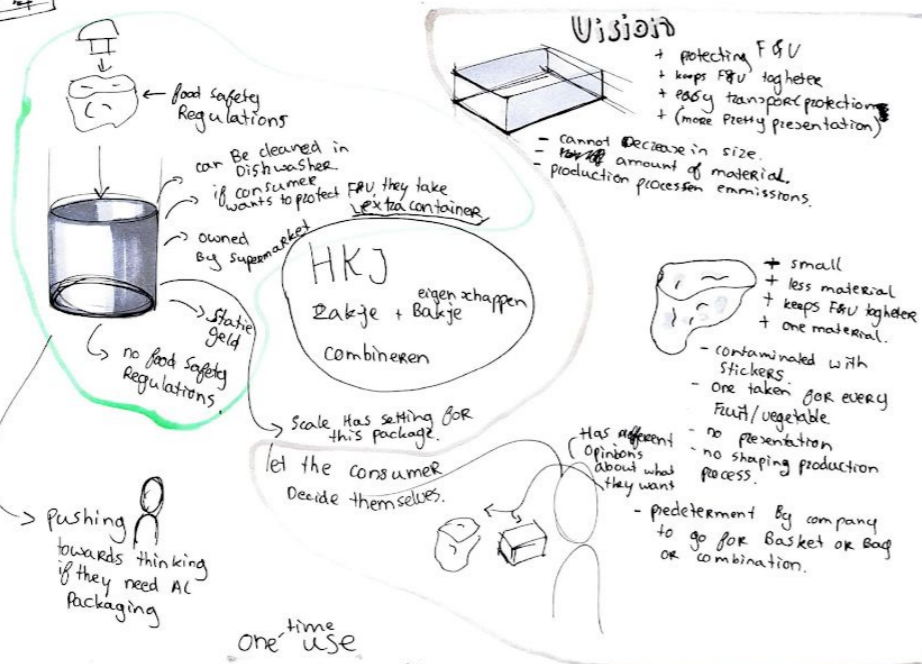 food safety
Regulations
can Be cleaned in
Dishwasher
if consumer
wants to protect F&U, they take
extra container
owned
By supermarket
statie
geld
no food safety
Regulations
HKJ
Zakje + Bakje
eigenschappen
combineren
Scale Has setting FOR
this package.
let the consumer
Decide themselves.
pushing
towards thinking
if they need AL
Packaging
one time use
Vision
+ protecting F&U
+ keeps F&U togheter
+ easy transport(protection)
+ (more Pretty presentation)
- cannot Decrease in size.
- amount of material.
- production processen emmissions.
+ small
+ less material
+ keeps F&U togheter
+ one material.
- contaminated with
stickers
- one taken FOR EVERY
Fruit/vegetable
- no presentation
- no shaping production
process.
- predeterment By company
to go for Basket OR Bag
OR combination.
Has different
opinions
about what
they want